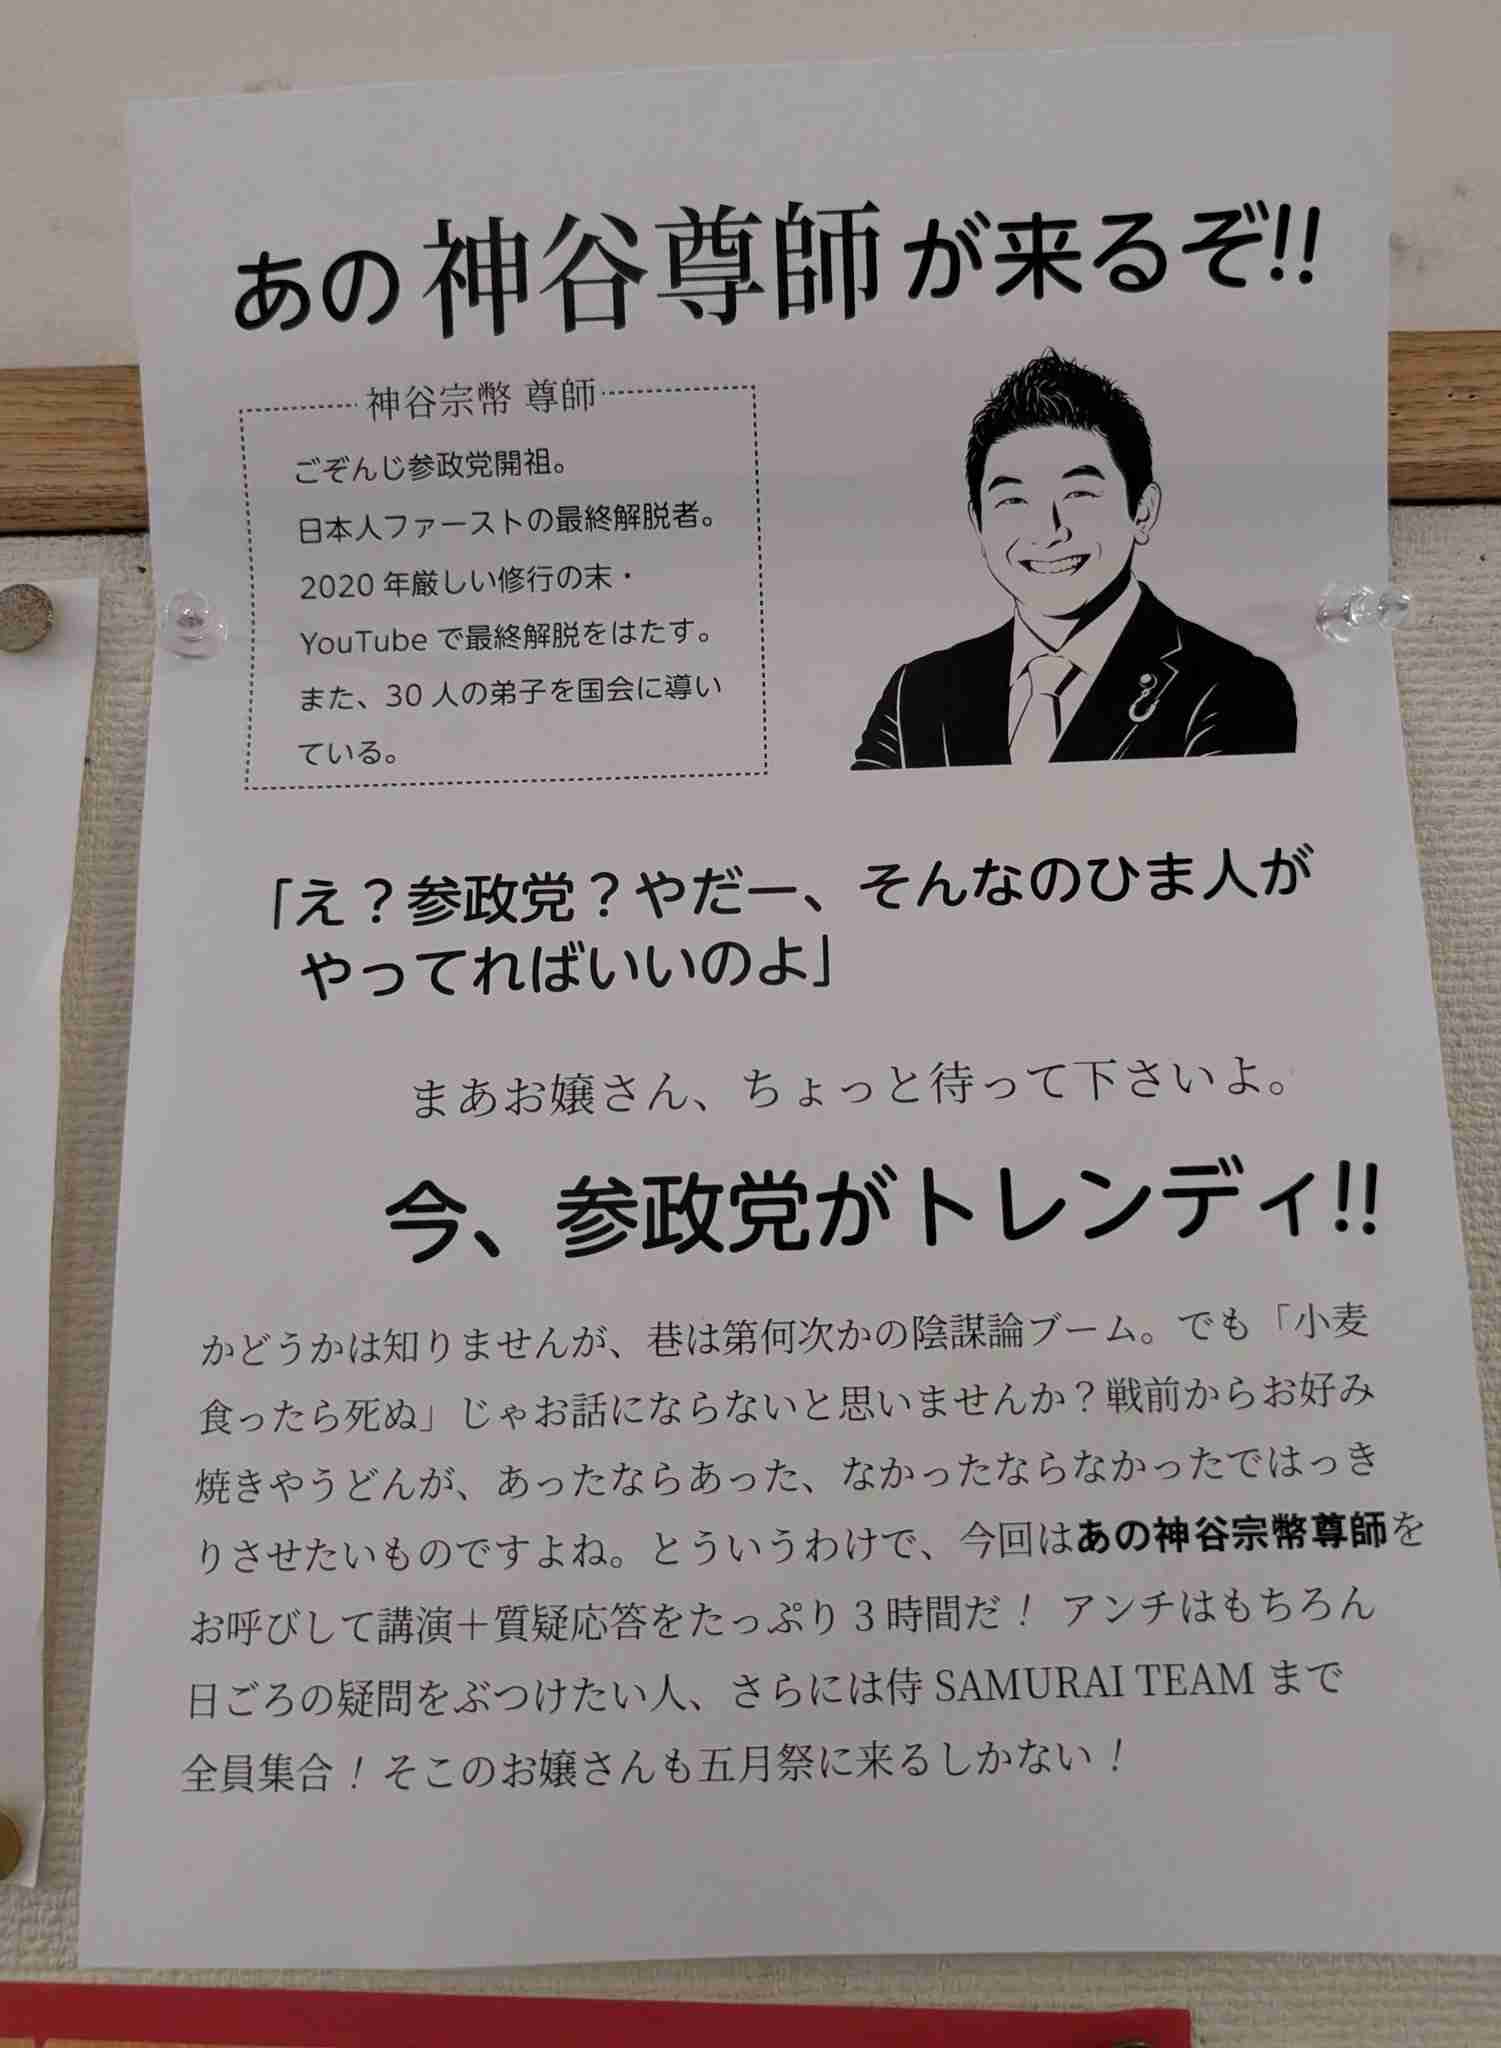 あの神谷尊師が来るぞ!!
神谷宗幣 尊師
ごぞんじ参政党開祖。
日本人ファーストの最終解脱者。
2020年厳しい修行の末・
YouTubeで最終解脱をはたす。
また、30人の弟子を国会に導い
ている。
「え？参政党？やだー、そんなのひま人が
やってればいいのよ」
まあお嬢さん、ちょっと待って下さいよ。
今、参政党がトレンディ!!
かどうかは知りませんが、巷は第何次かの陰謀論ブーム。でも「小麦
食ったら死ぬ」じゃお話にならないと思いませんか？戦前からお好み
焼きやうどんが、あったならあった、なかったならなかったではっき
りさせたいものですよね。とういうわけで、今回はあの神谷宗幣尊師を
お呼びして講演＋質疑応答をたっぷり3時間だ！ アンチはもちろん
日ごろの疑問をぶつけたい人、さらには侍 SAMURAI TEAM まで
全員集合！そこのお嬢さんも五月祭に来るしかない！